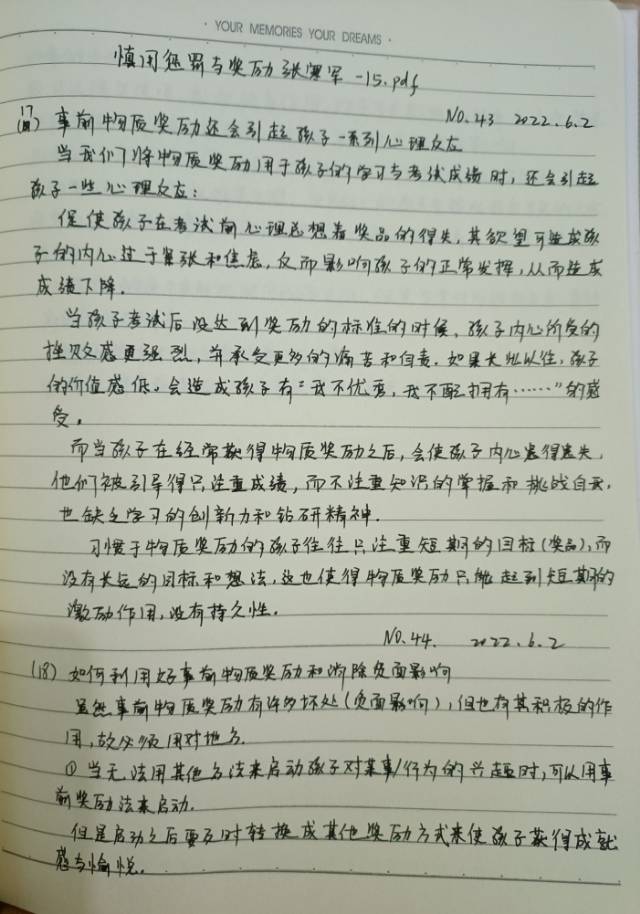 · YOUR MEMORIES YOUR DREAMS ·
慎用惩罚与奖励 张军 -15.pdf
NO.43 2022.6.2
(17) 事前物质奖励还会引起孩子一系列心理反应
当我们将物质奖励用于孩子的学习与考试成绩时，还会引起
孩子一些心理反应：
促使孩子在考试前心理总想着奖品的得失，其欲望可造成孩
子的内心过于紧张和焦虑，反而影响孩子的正常发挥，从而造成
成绩下降。
当孩子考试后没达到奖励的标准的时候，孩子内心所受的
挫败感更强烈，并承受更多的痛苦和自责。如果长此以往，孩子
的价值感低。会造成孩子有“我不优秀，我不配拥有……”的感
受。
而当孩子在经常获得物质奖励之后，会使孩子内心患得患失，
他们被引导得只注重成绩，而不注重知识的掌握和挑战自我，
也缺乏学习的创新力和钻研精神。
习惯于物质奖励的孩子往往只注重短期的目标(奖品)，而
没有长远的目标和想法，这也使得物质奖励只能起到短期的
激励作用，没有持久性。
NO.44. 2022.6.2
(18) 如何利用好事前物质奖励和消除负面影响
虽然事前物质奖励有许多坏处(负面影响)，但也有其积极的作
用，故必须用对地方。
① 当无法用其他方法来启动孩子对某事/行为的兴趣时，可以用事
前奖励法来启动.
但是启动之后要及时转换成其他奖励方式来使孩子获得成就
感与愉悦。